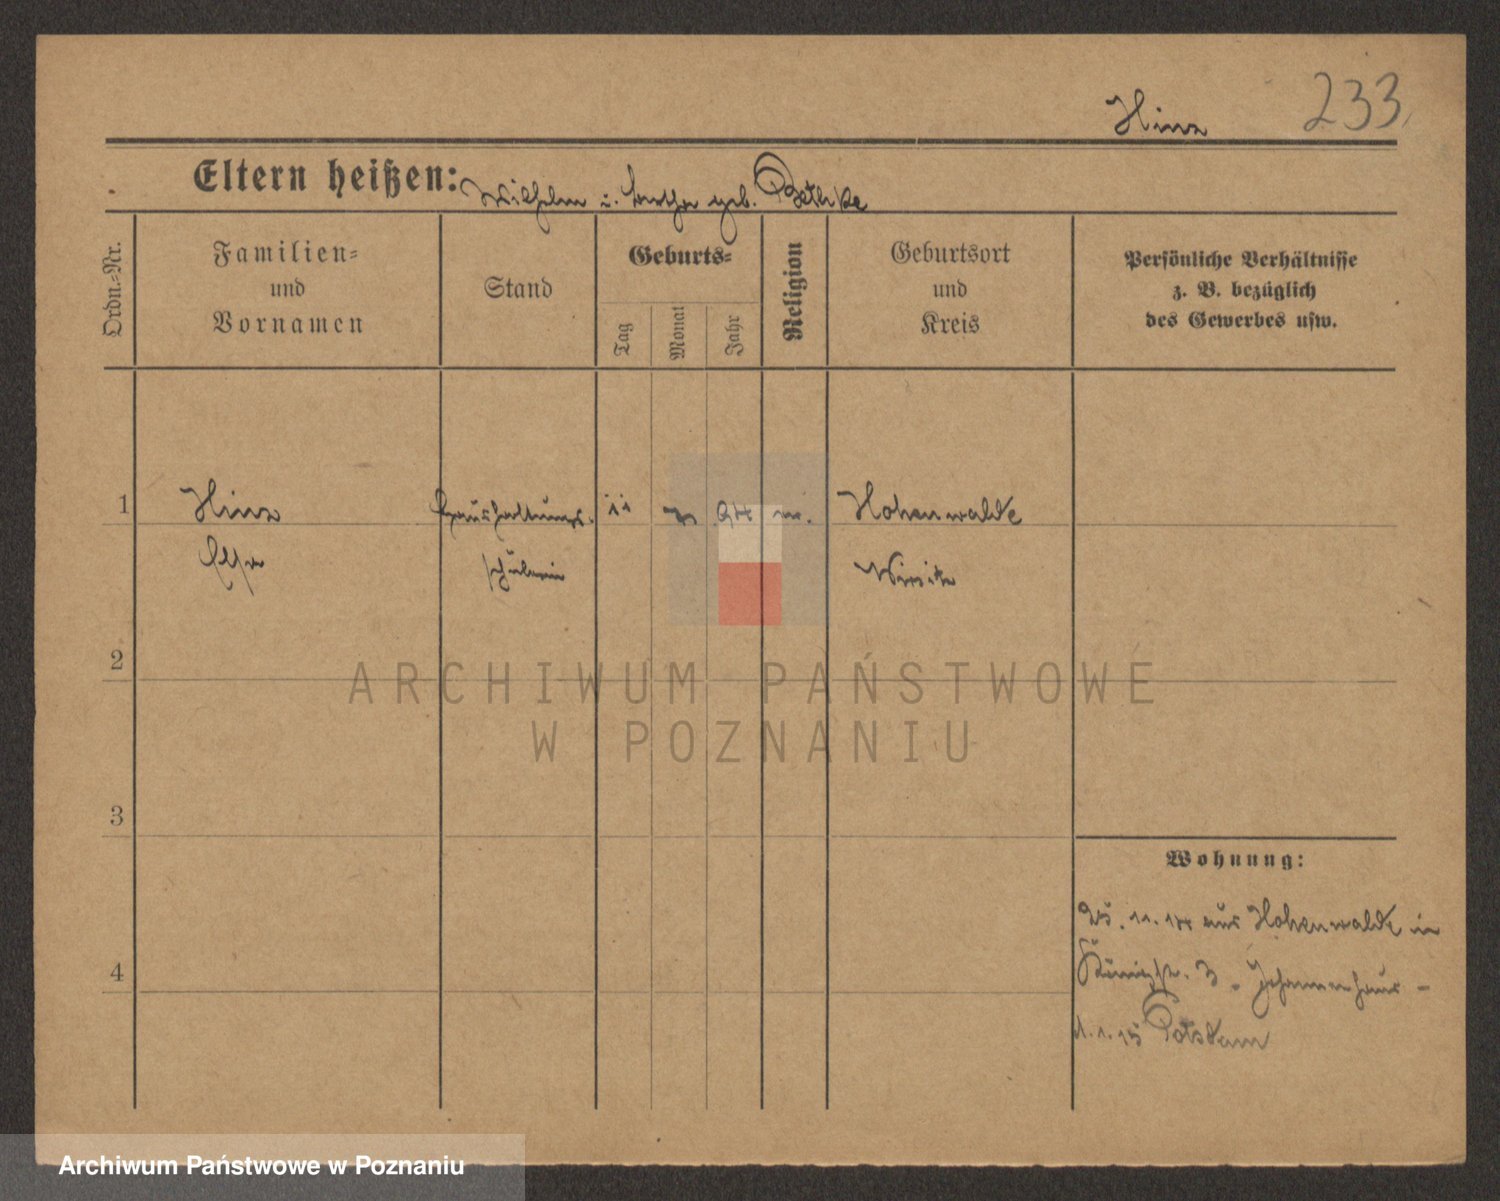 233
Hinz
Eltern heißen: Wilhelm u. Bertha geb. Bethke
Ordn.-Nr.
Familien- und Vornamen
Stand
Geburts-
Tag
Monat
Jahr
Religion
Geburtsort und Kreis
Persönliche Verhältnisse
z. B. bezüglich
des Gewerbes usw.
1
Hinz
Haushaltungs-
11
Hohenwalde
Else
schülerin
Wirsitz
2
ARCHIWUM PAŃSTWOWE
W POZNANIU
3
Wohnung:
25. 11. 14 aus Hohenwalde in
4
Königstr. 3 Johannenhaus -
1. 15 Potsdam
Archiwum Państwowe w Poznaniu